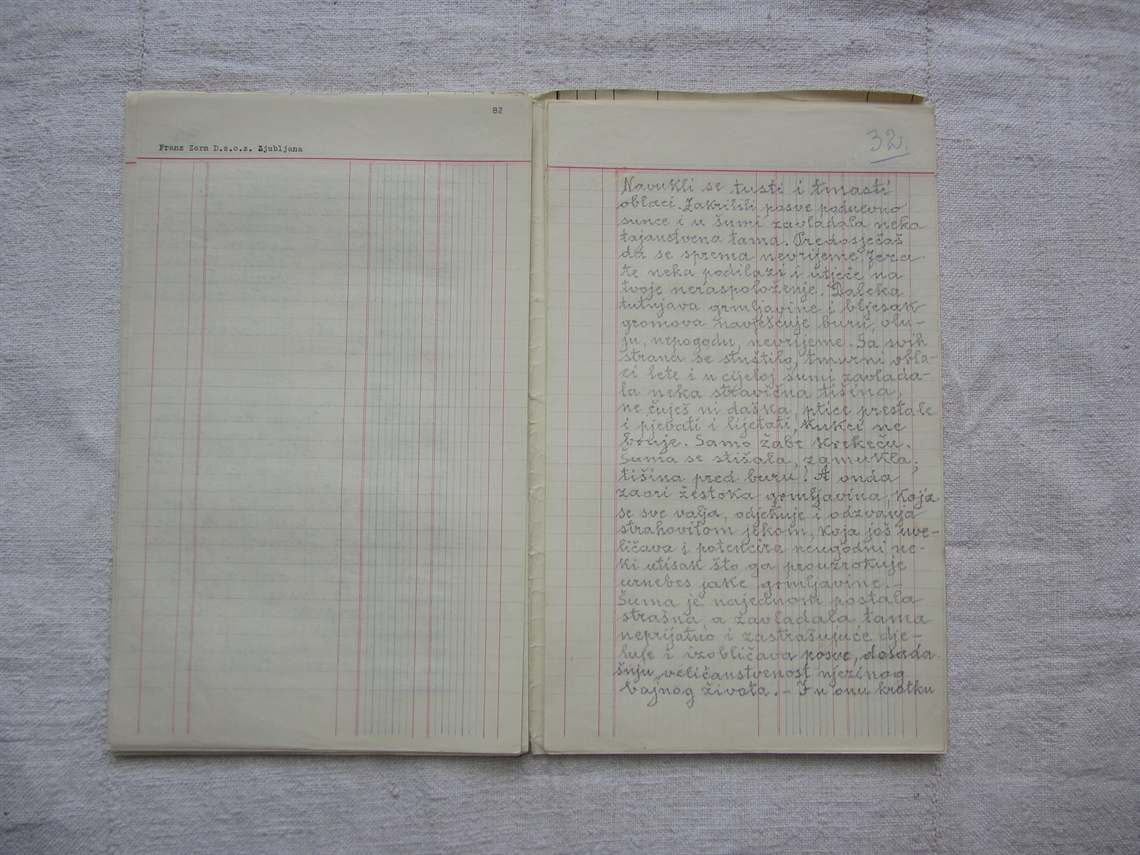 82
Franz Zorn D.z.o.z. Ljubljana
32.
Navukli se tusti i tmasti
oblaci. Zakrilili posve podnevno
sunce i u šumi zavladala neka
tajanstvena tama. Predosjećaš
da se sprema nevrijeme. Jeza
te neka podilazi i utječe na
tvoje neraspoloženje. Daleka
tutnjava grmljavine i bljesak
gromova navješćuje buru, olu-
ju, nepogodu, nevrijeme. Sa svih
strana se stuštilo, tmurni obla-
ci lete i u cijeloj šumi zavlada-
la neka stravična tišina,
ne čuješ ni daška, ptice prestale
i pjevati i lijetati, kukci ne
bruje. Samo žabe krekeču.
Šuma se stišala, zamukla;
tišina pred buru! A onda
zaori žestoka grmljavina, koja
se sve valja, odjekuje i odzvanja
strahovitom jekom, koja još uve-
ličava i potencira neugodni ne-
ki utisak što ga prouzrokuje
urnebes jake grmljavine. –
Šuma je najednom postala
strašna, a zavladala tama
neprijatno i zastrašujuće dje-
luje i izobličava posve, dosada
šnju veličanstvenost njezinog
bajnog života. – I u onu kratku